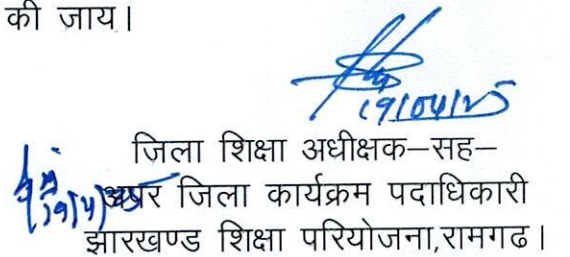 की जाय।
19/04/25
जिला शिक्षा अधीक्षक–सह–
अपर जिला कार्यक्रम पदाधिकारी
झारखण्ड शिक्षा परियोजना,रामगढ।